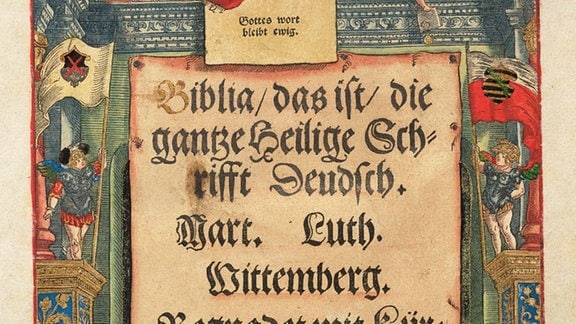 Gottes wort
bleibt ewig.
Biblia/ das ist/ die
gantze Heilige Sch-
rifft Deudsch.
Mart. Luth.
Wittemberg.